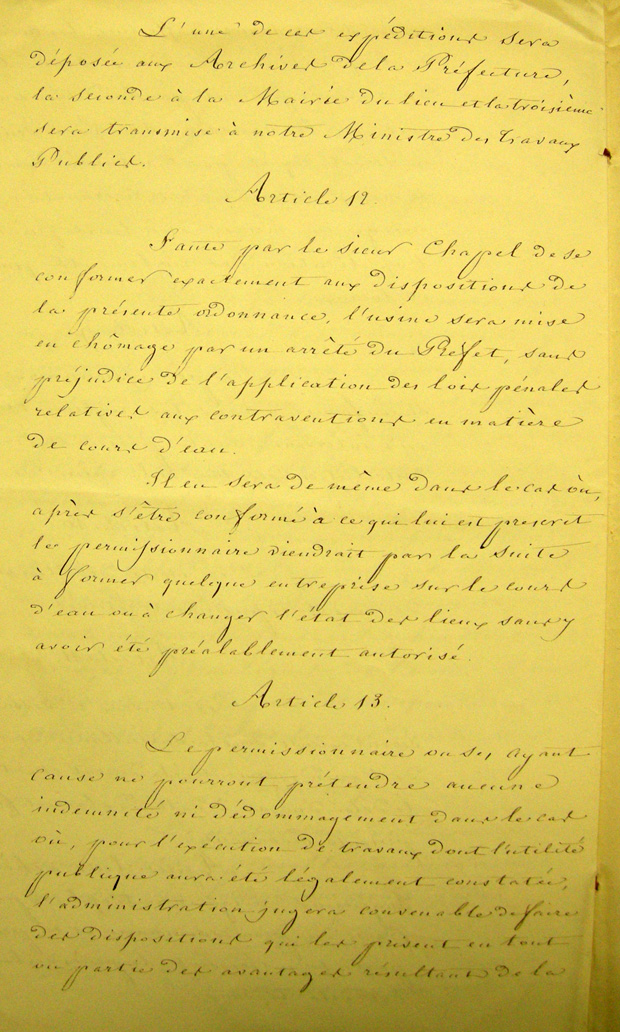 L'une de ces expéditions sera
déposée aux Archives de la Préfecture,
la seconde à la Mairie du lieu et la troisième
sera transmise à notre Ministre des Travaux
Publics.
Article 12.
Faute par le sieur Chapel de se
conformer exactement aux dispositions de
la présente ordonnance, l'usine sera mise
en chômage par un arrêté du Préfet, sans
préjudice de l'application des lois pénales
relatives aux contraventions en matière
de cours d'eau.
Il en sera de même dans le cas où,
après s'être conformé à ce qui lui est prescrit
le permissionnaire viendrait par la suite
à former quelque entreprise sur le cours
d'eau ou à changer l'état des lieux sans y
avoir été préalablement autorisé.
Article 13.
Le permissionnaire ou ses ayant
cause ne pourront prétendre aucune
indemnité ni dédommagement dans le cas
où, pour l'exécution de travaux dont l'utilité
publique aura été légalement constatée,
l'administration jugera convenable de faire
des dispositions qui les privent en tout
ou partie des avantages résultant de la